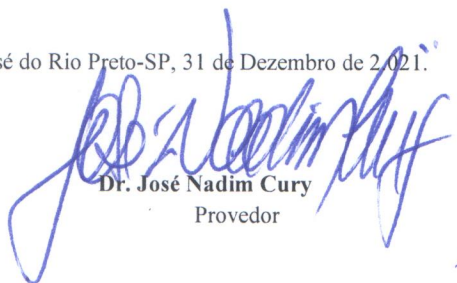 sé do Rio Preto-SP, 31 de Dezembro de 2.021.
José Nadim Cury
Dr. José Nadim Cury
Provedor